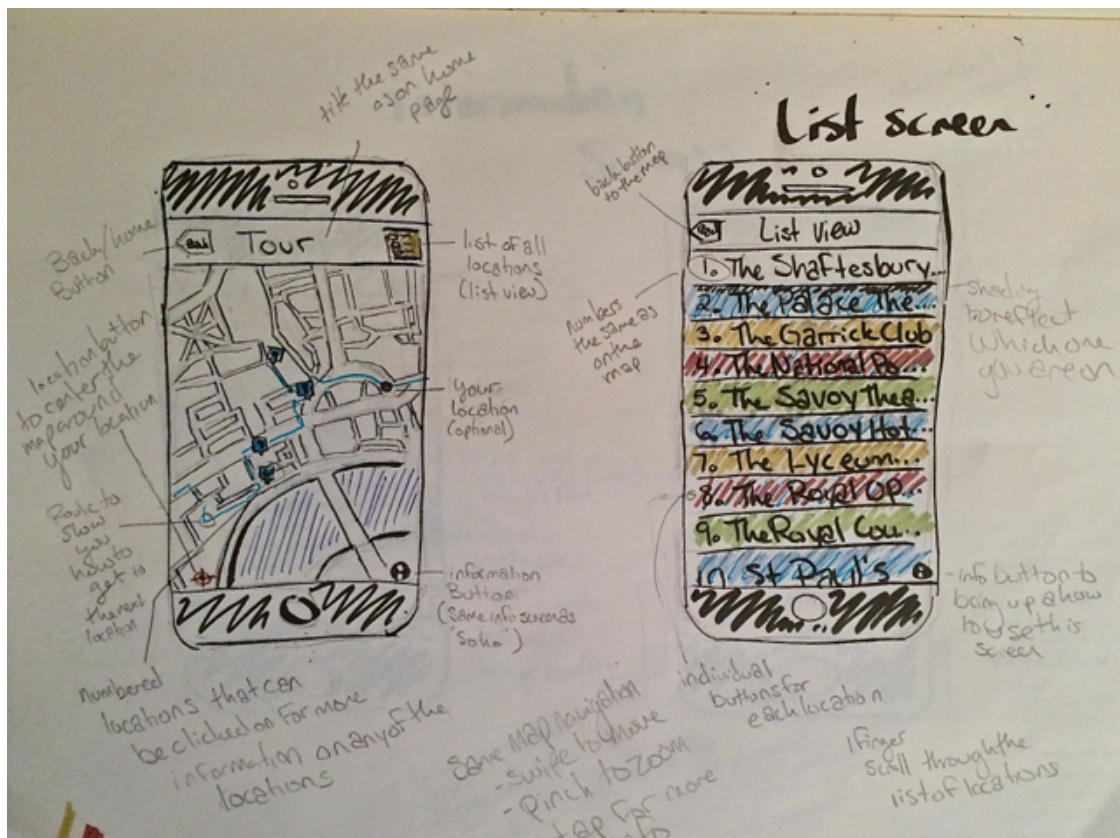 title the same
as on home
page
List screen
Back/home
Button
Tour
list of all
locations
(list view)
location button
to center the
map around
your location
your
location
(optional)
Route to
show
you
how to
get to
the next
location
information
Button
(same info screen as
"Soho")
numbered
locations that can
be clicked on for more
information on any of the
locations
same map navigation
- swipe to move
- pinch to zoom
tap for more
info
back button
to the map
List View
1. The Shaftesbury...
2. The Palace The...
3. The Garrick Club
4. The National Po...
5. The Savoy Thea...
6. The Savoy Hot...
7. The Lyceum...
8. The Royal Op...
9. The Royal Cou...
St Paul's
numbers
the same as
on the
map
shading
to reflect
which one
you are on
info button to
bring up a how
to use this
screen
individual
buttons for
each location
1 finger
scroll through the
list of locations